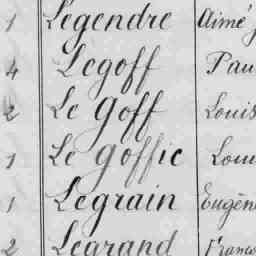 1 Légendre Aimé
4 Legoff Pau
2 Le Goff Louis
1 Le Goffic Lou
1 Legrain Eugèn
2 Legrand Franço